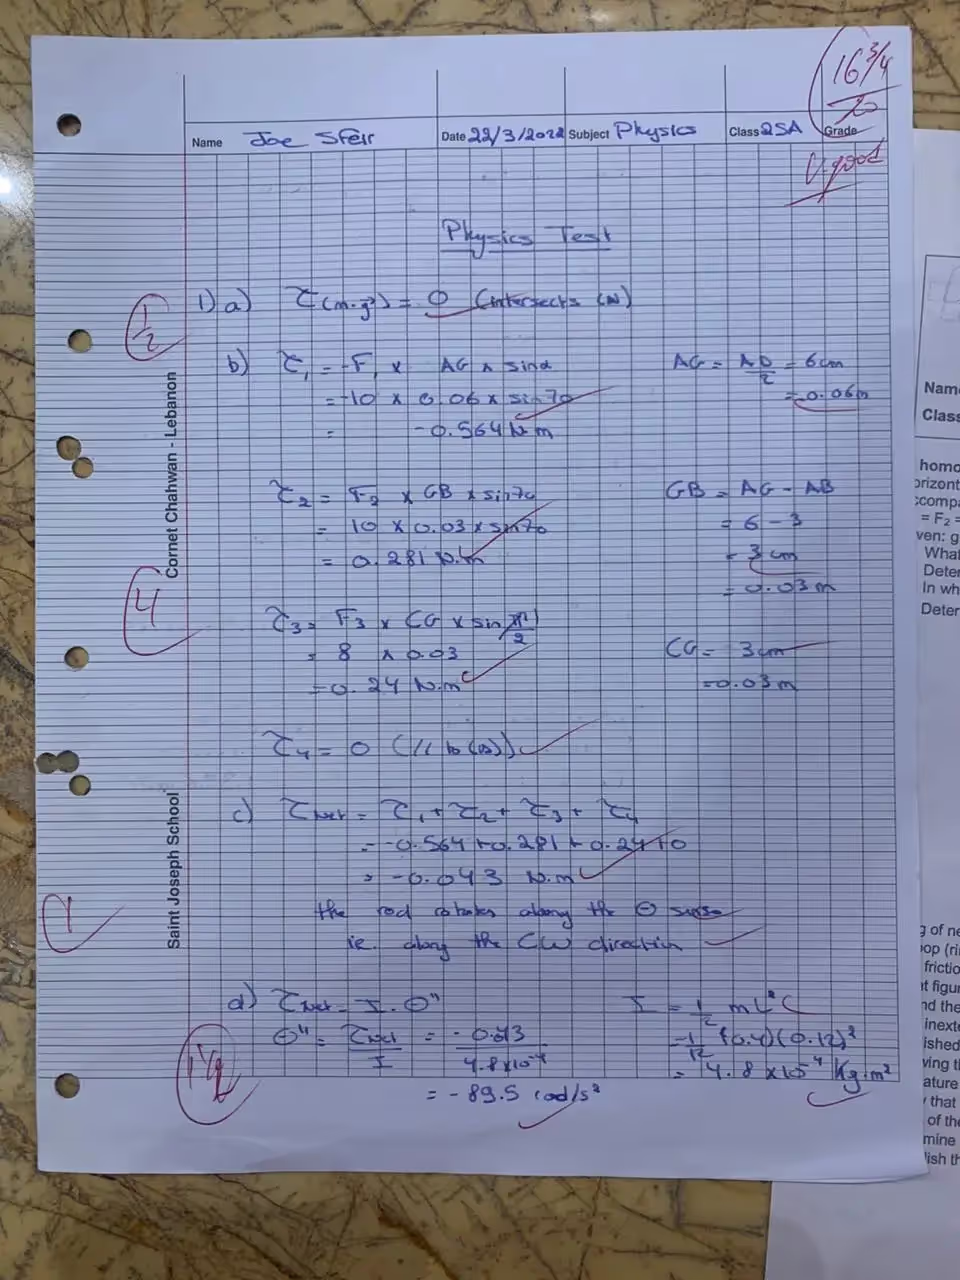 16 3/4
20
Name Joe Sfeir Date 22/3/2022 Subject Physics Class 2SA Grade
V.good
Physics Test
1) a) τ(m.g⃗) = 0 (intersects (Δ))
1/2
b) τ₁ = -F₁ × AG × sinα
= -10 × 0.06 × sin70
= -0.564 N.m
AG = AD/2 = 6cm
= 0.06m
τ₂ = F₂ × GB × sin70
= 10 × 0.03 × sin70
= 0.281 N.m
GB = AG - AB
= 6 - 3
= 3 cm
= 0.03m
4
τ₃ = F₃ × CG × sin π/2
= 8 × 0.03
= 0.24 N.m
CG = 3cm
= 0.03m
τ₄ = 0 (// to (Δ))
c) τnet = τ₁ + τ₂ + τ₃ + τ₄
= -0.564 + 0.281 + 0.24 + 0
= -0.043 N.m
the rod rotates along the ⊖ sense
ie. along the CW direction
d) τnet = I. θ"
θ" = τnet/I = -0.043/4.8×10⁻⁴
= -89.5 rad/s²
I = 1/12 mL²
= 1/12 (0.4)(0.12)²
= 4.8 ×10⁻⁴ Kg.m²
Cornet Chahwan - Lebanon
Saint Joseph School
Name
Class
homo
orizont
ccomp
= F₂ =
ven: g
What
Deter
In wh
Deter
g of ne
oop (ri
frictio
at figur
nd the
inext
ished
ving t
ature
y that
of the
mine
lish th